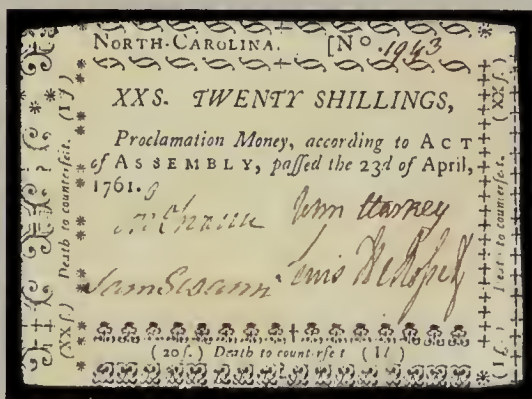 NORTH-CAROLINA. [No. 1943
XXS. TWENTY SHILLINGS,
Proclamation Money, according to ACT
of ASSEMBLY, paſſed the 23d of April,
1761.
John Harvey
Sam Swann Lewis DeRoſset
(20ſ.) Death to counterfe t (1l)
(XXſ.) Death to counterfeit. (1ſ)
(XXſ.) Death to counterfeit. (1ſ.)